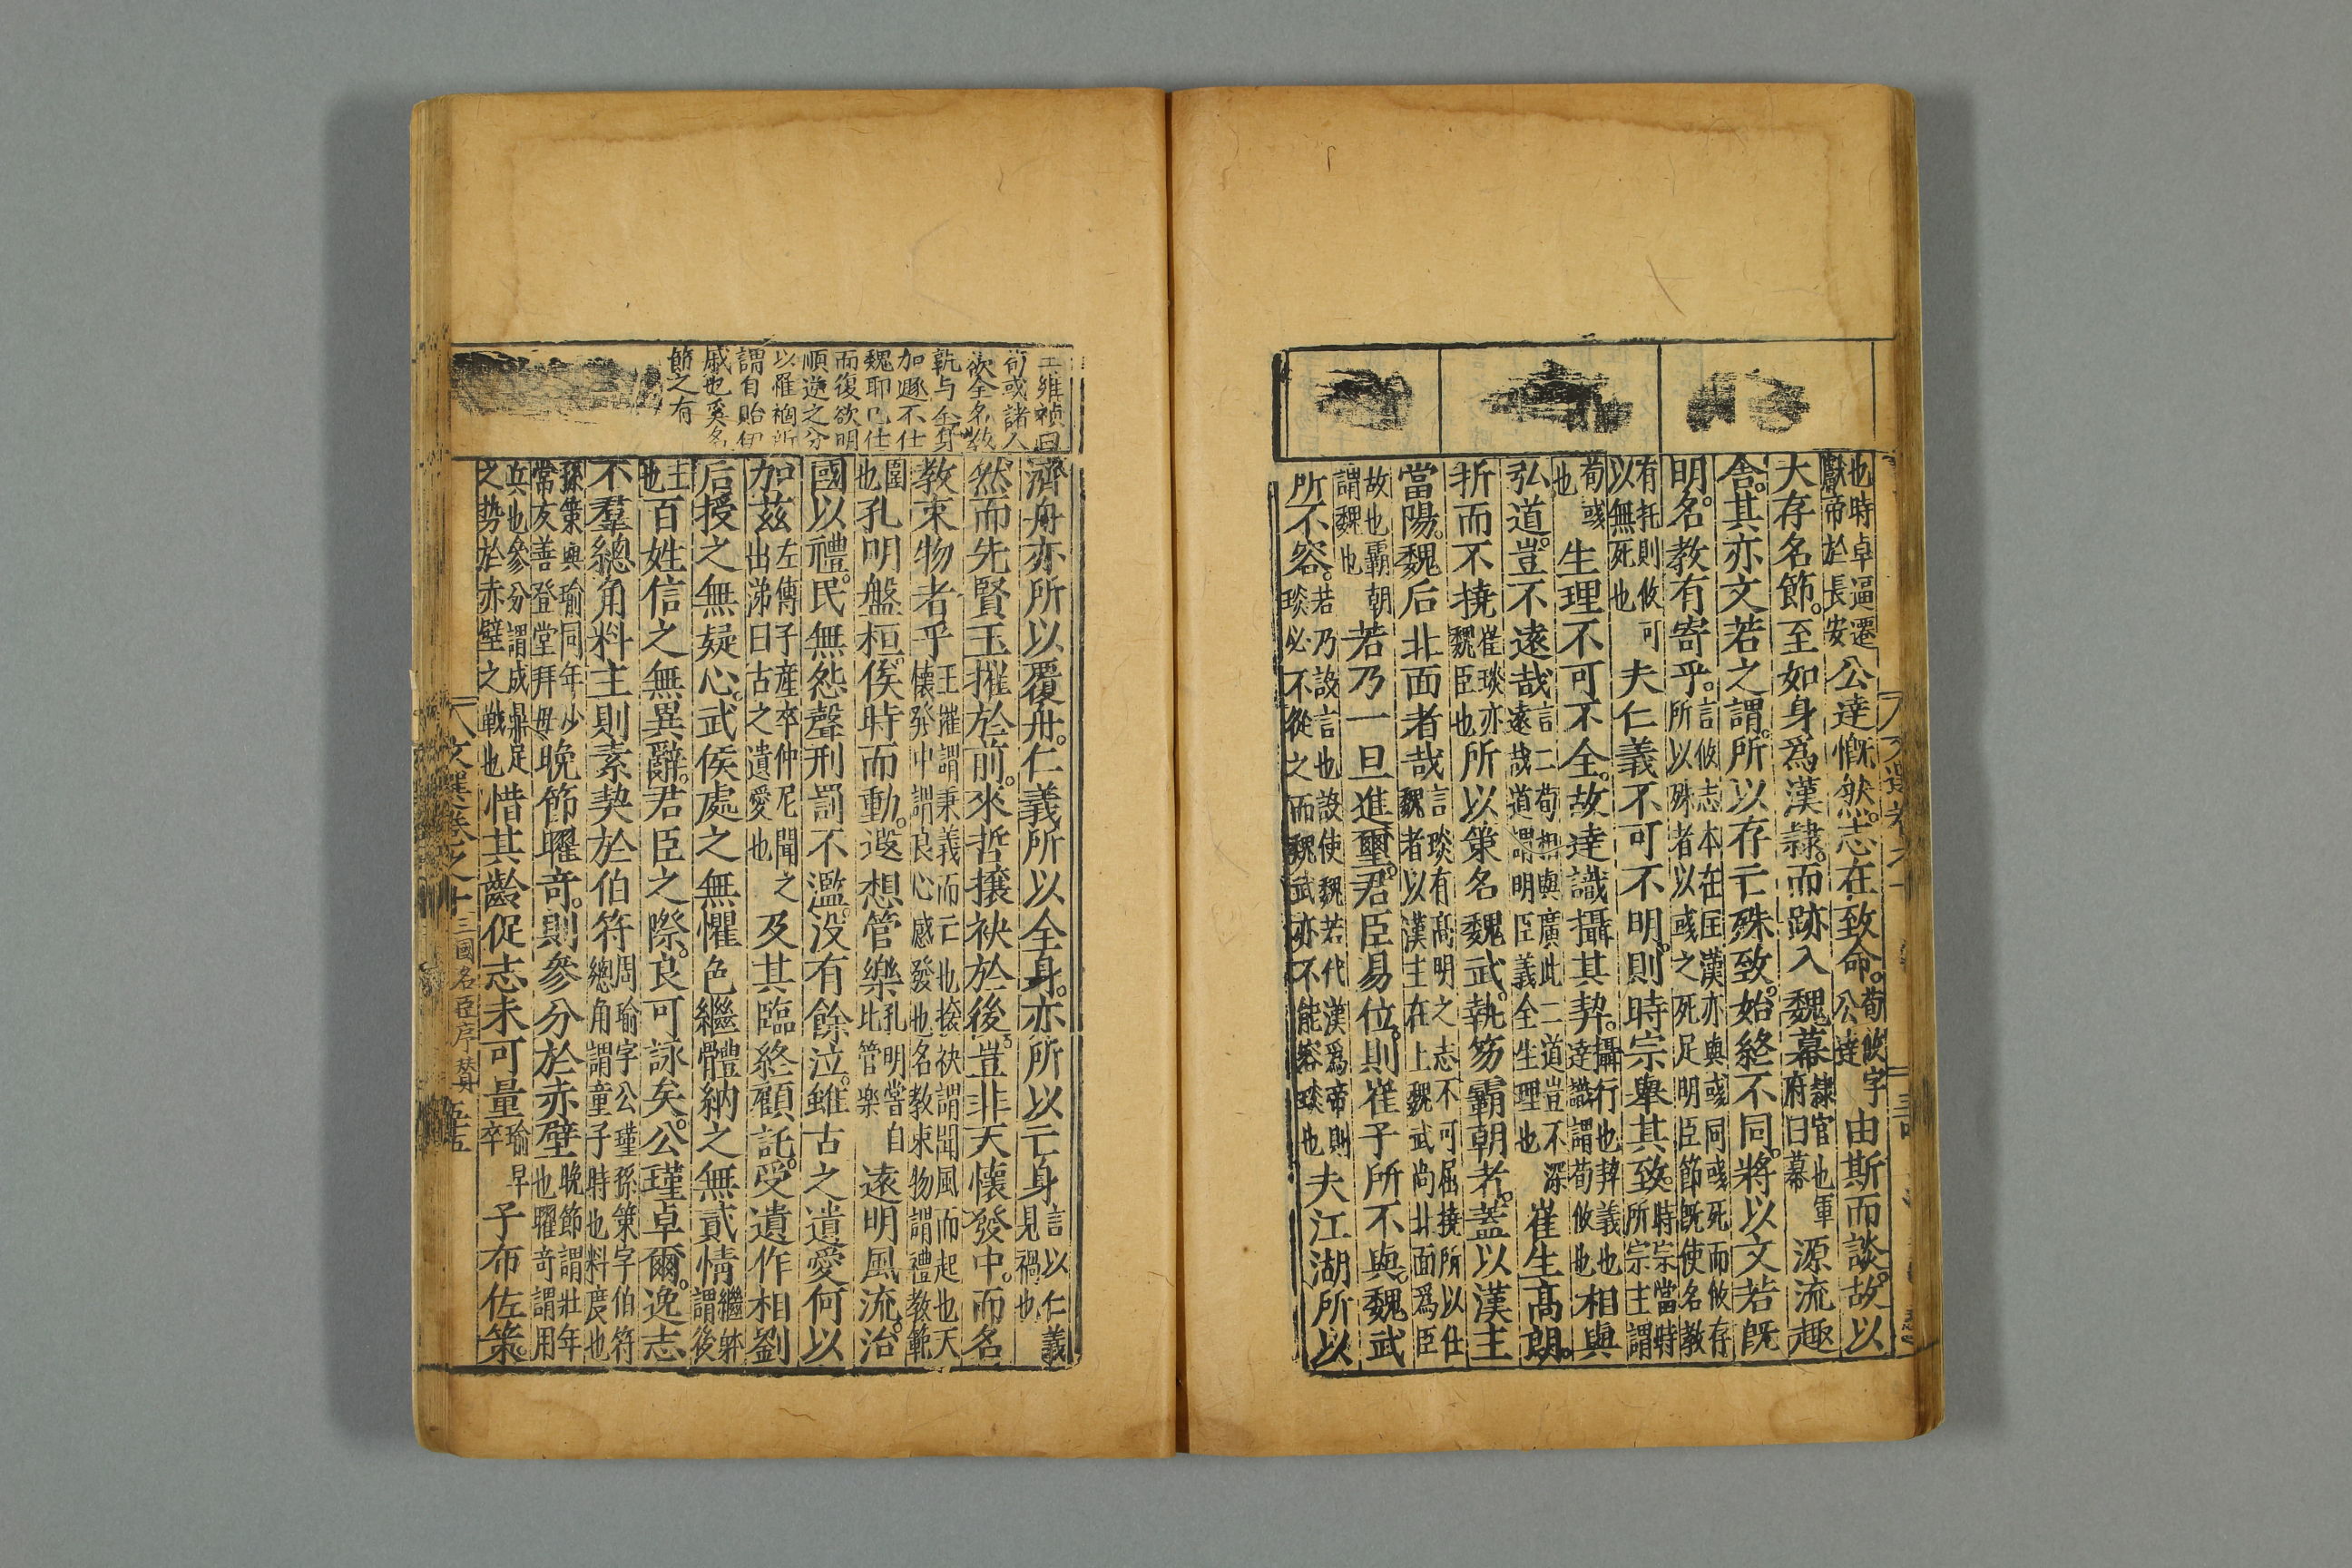 也時卓逼遷獻帝於長安公達慨然志在致命。荀攸字公達由斯而談。故以
大存名節。至如身爲漢隸。而跡入魏幕隸官也軍府曰幕源流趣
舍。其亦文若之謂。所以存亡殊致。始終不同。將以文若旣
明。名教有寄乎。言攸志本在匡漢亦與彧同彧死而攸存所以殊者以彧之死足明臣節旣使名教
有托則攸可以無死也夫仁義不可不明。則時宗舉其致。時宗當時所宗主謂
荀彧也生理不可不全。故達識攝其契。攝行也契義也達識謂荀攸也相與
弘道。豈不遠哉言二荀相與廣此二道豈不深遠哉道謂明臣義全生理也崔生高朗。
折而不撓崔琰亦魏臣也所以策名魏武。執笏霸朝者。蓋以漢主
當陽。魏后北面者哉言琰有高明之志不可屈撓所以仕魏者以漢主在上魏武尚北面爲臣
故也霸朝謂魏也若乃一旦進璽。君臣易位。則崔子所不與。魏武
所不容。若乃設言也設使魏若代漢爲帝則琰必不從之而魏武亦不能容琰也夫江湖所以
王維禎曰
荀彧諸人
欲全名教
孰与全身
加遯不仕
魏耶已仕
而復欲明
順逆之分
以罹禍所
謂自貽伊
戚也奚名
節之有
濟舟亦所以覆舟。仁義所以全身。亦所以亡身言以仁義見禍也
然而先賢玉摧於前。來哲攘袂於後。豈非天懷發中。而名
教束物者乎玉摧謂秉義而亡也攘袂謂聞風而起也天懷發中謂良心感發也名教束物謂禮教範
圍也孔明盤桓。俟時而動。遐想管樂孔明嘗自比管樂遠明風流。治
國以禮。民無怨聲刑罰不濫。沒有餘泣。雖古之遺愛何以
加茲左傳子産卒仲尼聞之出涕曰古之遺愛也及其臨終顧託。受遺作相劉
后授之無疑心。武侯處之無懼色繼體納之無貳情繼躰謂後
主也百姓信之無異辭。君臣之際。良可詠矣。公瑾卓爾。逸志
不羣總角料主則素契於伯符周瑜字公瑾孫策字伯符總角謂童子時也料度也
孫策與瑜同年少常友善登堂拜母晚節曜奇。則參分於赤壁晚節謂壯年也曜奇謂用
兵也參分謂成鼎足之勢於赤壁之戰也惜其齡促志未可量瑜早卒子布佐策。
文選卷之十 三國名臣序賛 五五